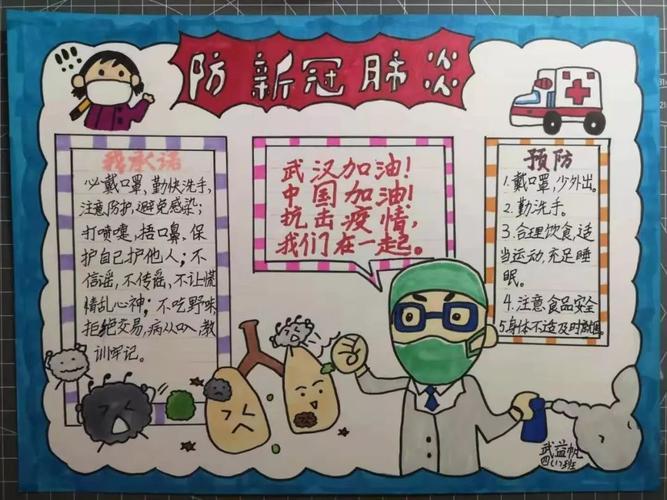 防新冠肺炎
我承诺
必戴口罩,勤快洗手,
注意防护,避免感染;
打喷嚏,捂口鼻,保
护自己护他人;不
信谣,不传谣,不让慌
情乱心神;不吃野味
拒绝交易,病从口入,教
训牢记。
武汉加油!
中国加油!
抗击疫情,
我们在一起。
预防
1.戴口罩,少外出。
2.勤洗手。
3.合理饮食,适
当运动,充足睡
眠。
4.注意食品安全
5.身体不适及时
武益帆
四(1)班